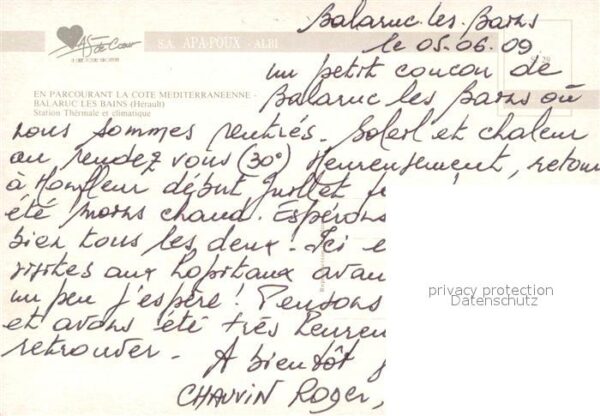 Balaruc-les-Bains
le 05-06.09
As de Cœur
S.A. APA-POUX - ALBI
un petit coucou de
EN PARCOURANT LA COTE MEDITERRANEENNE -
BALARUC LES BAINS (Hérault)
Station Thermale et climatique
Balaruc les Bains où
nous sommes rentrés. Soleil et chaleur
au rendez vous (30°) Heureusement, retour
à Honfleur début Juillet
été moins chaud. Espérons
bien tous les deux. Ici
visites aux hopitaux avan
un peu j'espère ! Pensons
et avons été très heureu
retrouver. A bientôt
CHAUVIN Roger,
privacy protection
Datenschutz